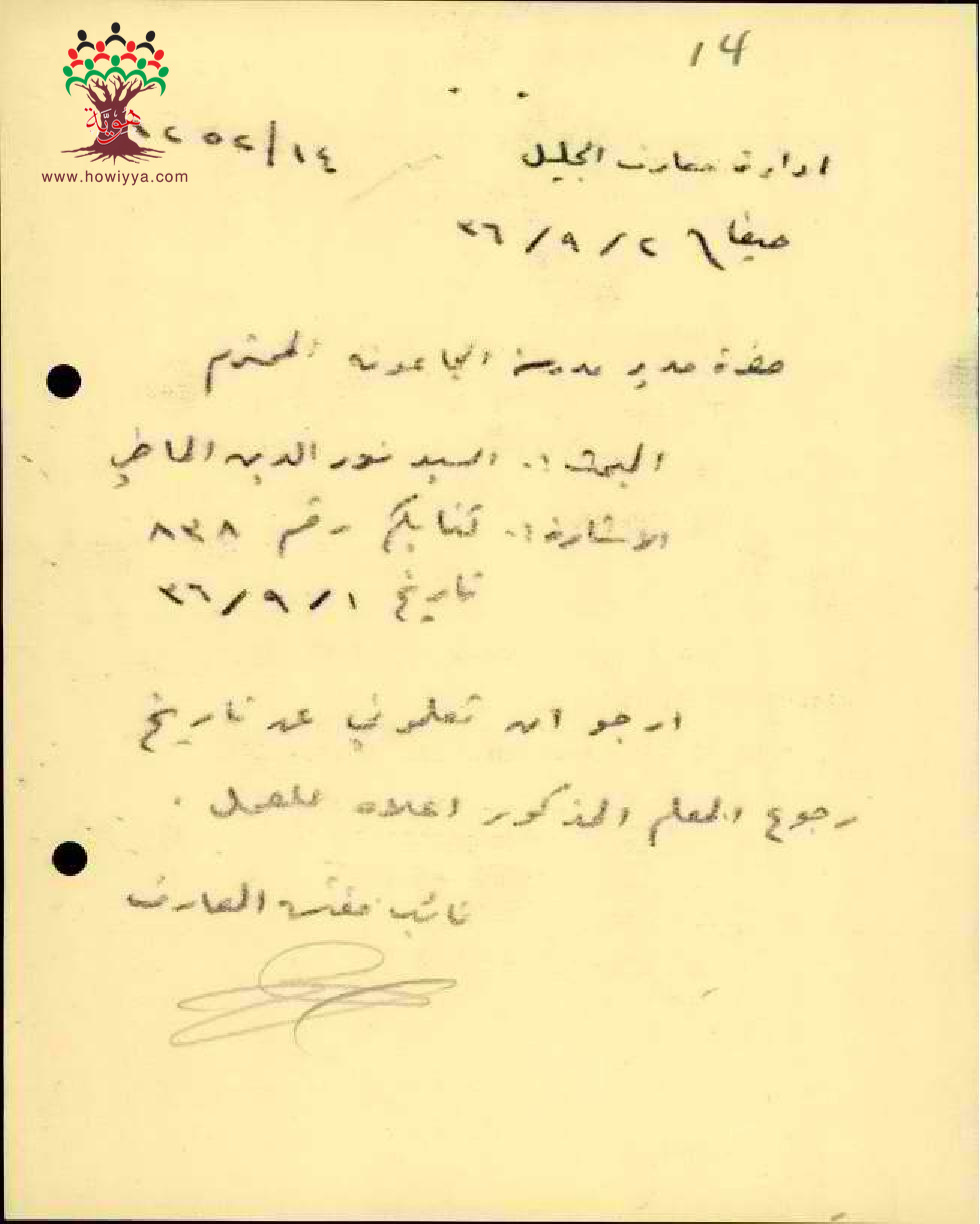 14
هوية
www.howiyya.com
ادارة معارف الجليل ٢٥٢/١٤
حيفا ٢ / ٩ / ٣٦
حضرة مدير مدرسة الجاعونه المحترم
المبحث :. السيد نور الدين
الاشارة :. كتابكم رقم ٨٣٨
تاريخ ١ / ٩ / ٣٦
ارجو ان تعلموني عن تاريخ
رجوع المعلم المذكور اعلاه للعمل .
نائب مفتش المعارف